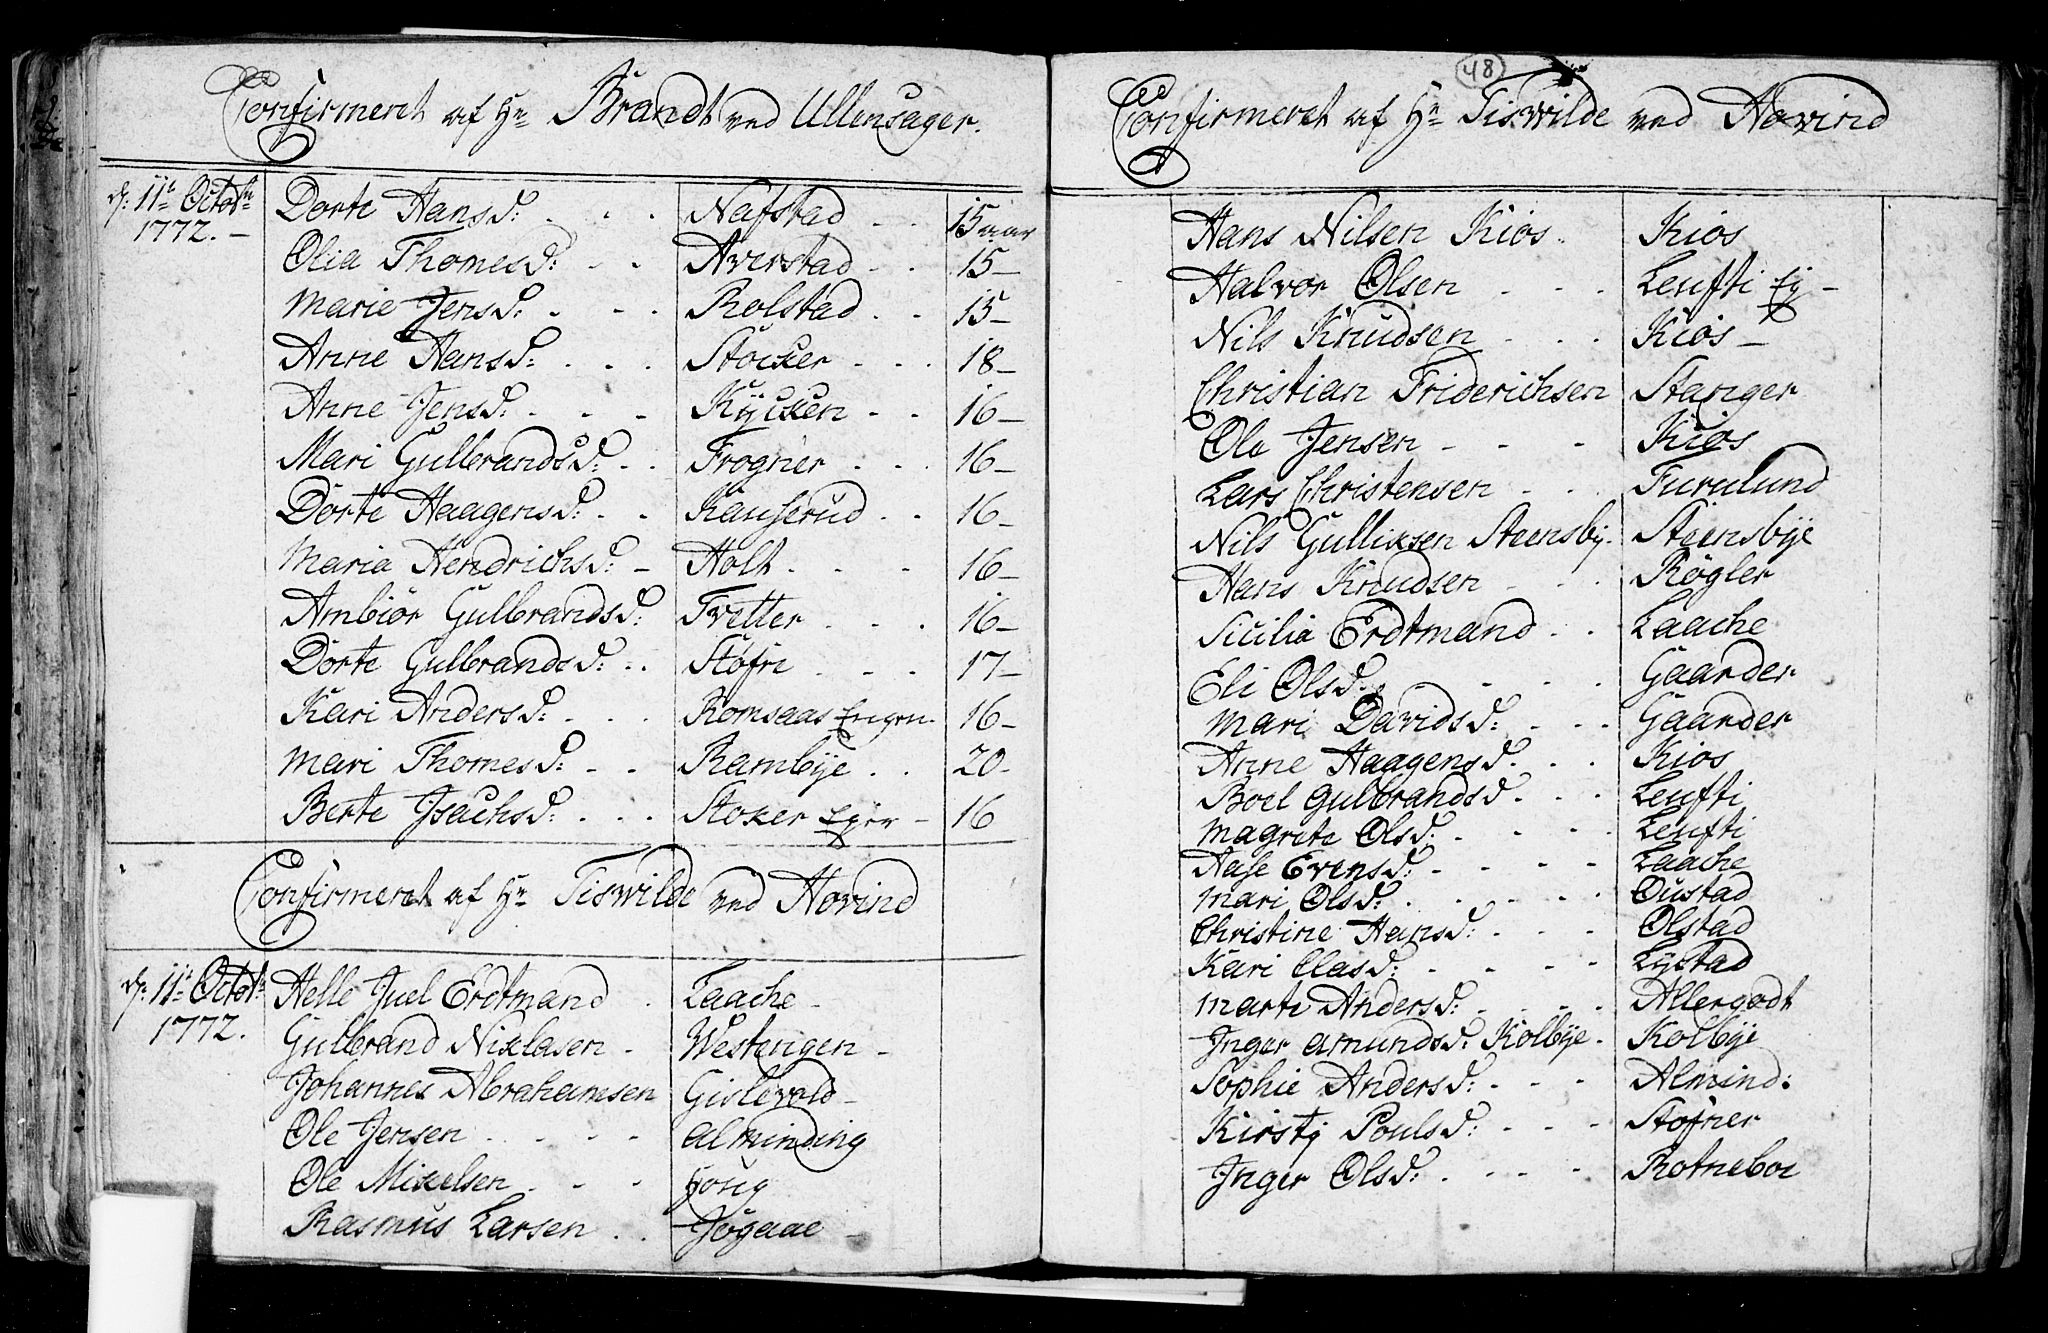 Confirmeret af Hr Brandt ved Ullensager.
d: 11te Octobr 1772. Dorte Hansd: Nafstad 15 aar
Olia Thomesd: Averstad 15
Marie Jensd: Rolstad 15
Anne Hansd: Stocker 18
Anne Jensd: Kÿcken 16
Mari Gulbrandsd: Frogner 16
Dorte Haagensd: Kauserud 16
Maria Hendrichsd: Holt 16
Ambiör Gulbrandsd: Tvetter 16
Dorte Gulbrandsd: Stöfri 17
Kari Andersd: Romsaas Engen 16
Mari Thomesd: Rambÿe 20
Berte Jsachsd: Stoker Ejer 16
Confirmeret af Hr Tiswilde ved Hovind
d: 11te Octobr 1772. Helle Juel Erdtmand Laache
Gulbrand Nixlasen Westengen
Johannes Abrahamsen Gislevold
Ole Jensen Alminding
Ole Mixelsen Houg
Rasmus Larsen Jögaae
48
Confirmeret af Hr Tiswilde ved Hovind
Hans Nilsen Kiös Kiös
Halvor Olsen Leufti Ej
Nils Knudsen Kiös
Christian Friderichsen Stanger
Ole Jensen Kiös
Lars Christensen Furulund
Nils Gullixsen Steensbÿ Steensbÿe
Hans Knudsen Rögler
Sicilia Erdtmand Laache
Eli Olsd: Gaarder
Mari Davidsd: Gaarder
Anne Haagensd. Kiös
Boel Gulbrandsd. Leufti
Magrete Olsd: Leufti
Aase Evensd: Laache
Mari Olsd: Oustad
Christine Hansd: Olstad
Kari Olasd: Lÿstad
Marte Andersd: Allergodt
Jnger Amundsd: Kolbÿe Kolbÿe
Sophie Andersd: Almind:
Kirstj Poulsd: Stöfner
Jnger Olsd: Rotneboe